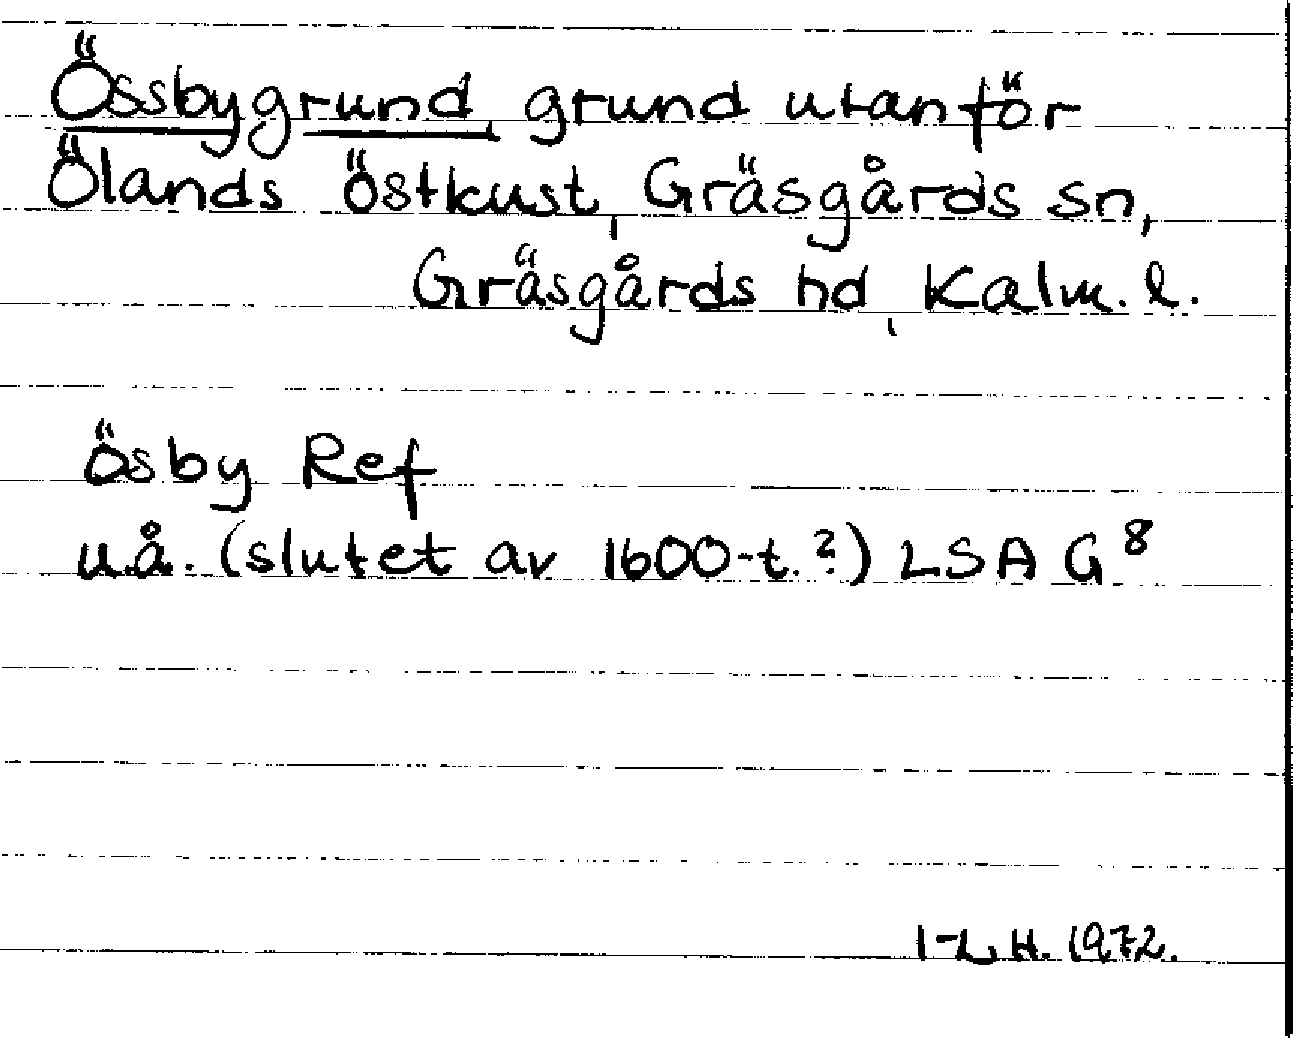 Össbygrund, grund utanför
Ölands östkust, Gräsgårds sn,
Gräsgårds hd, Kalm. l.
Ösby Ref
u.å. (slutet av 1600-t.?) LSA G⁸
I-L H. 1972.